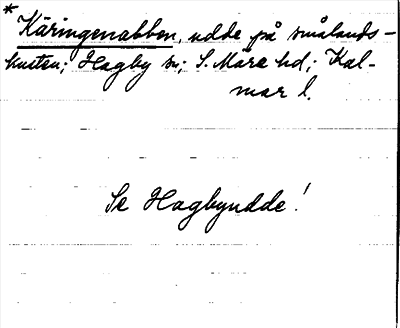 * Käringenabben, udde på smålands-
kusten; Hagby sn; S. Möre hd; Kal-
mar l.
Se Hagbyudde!